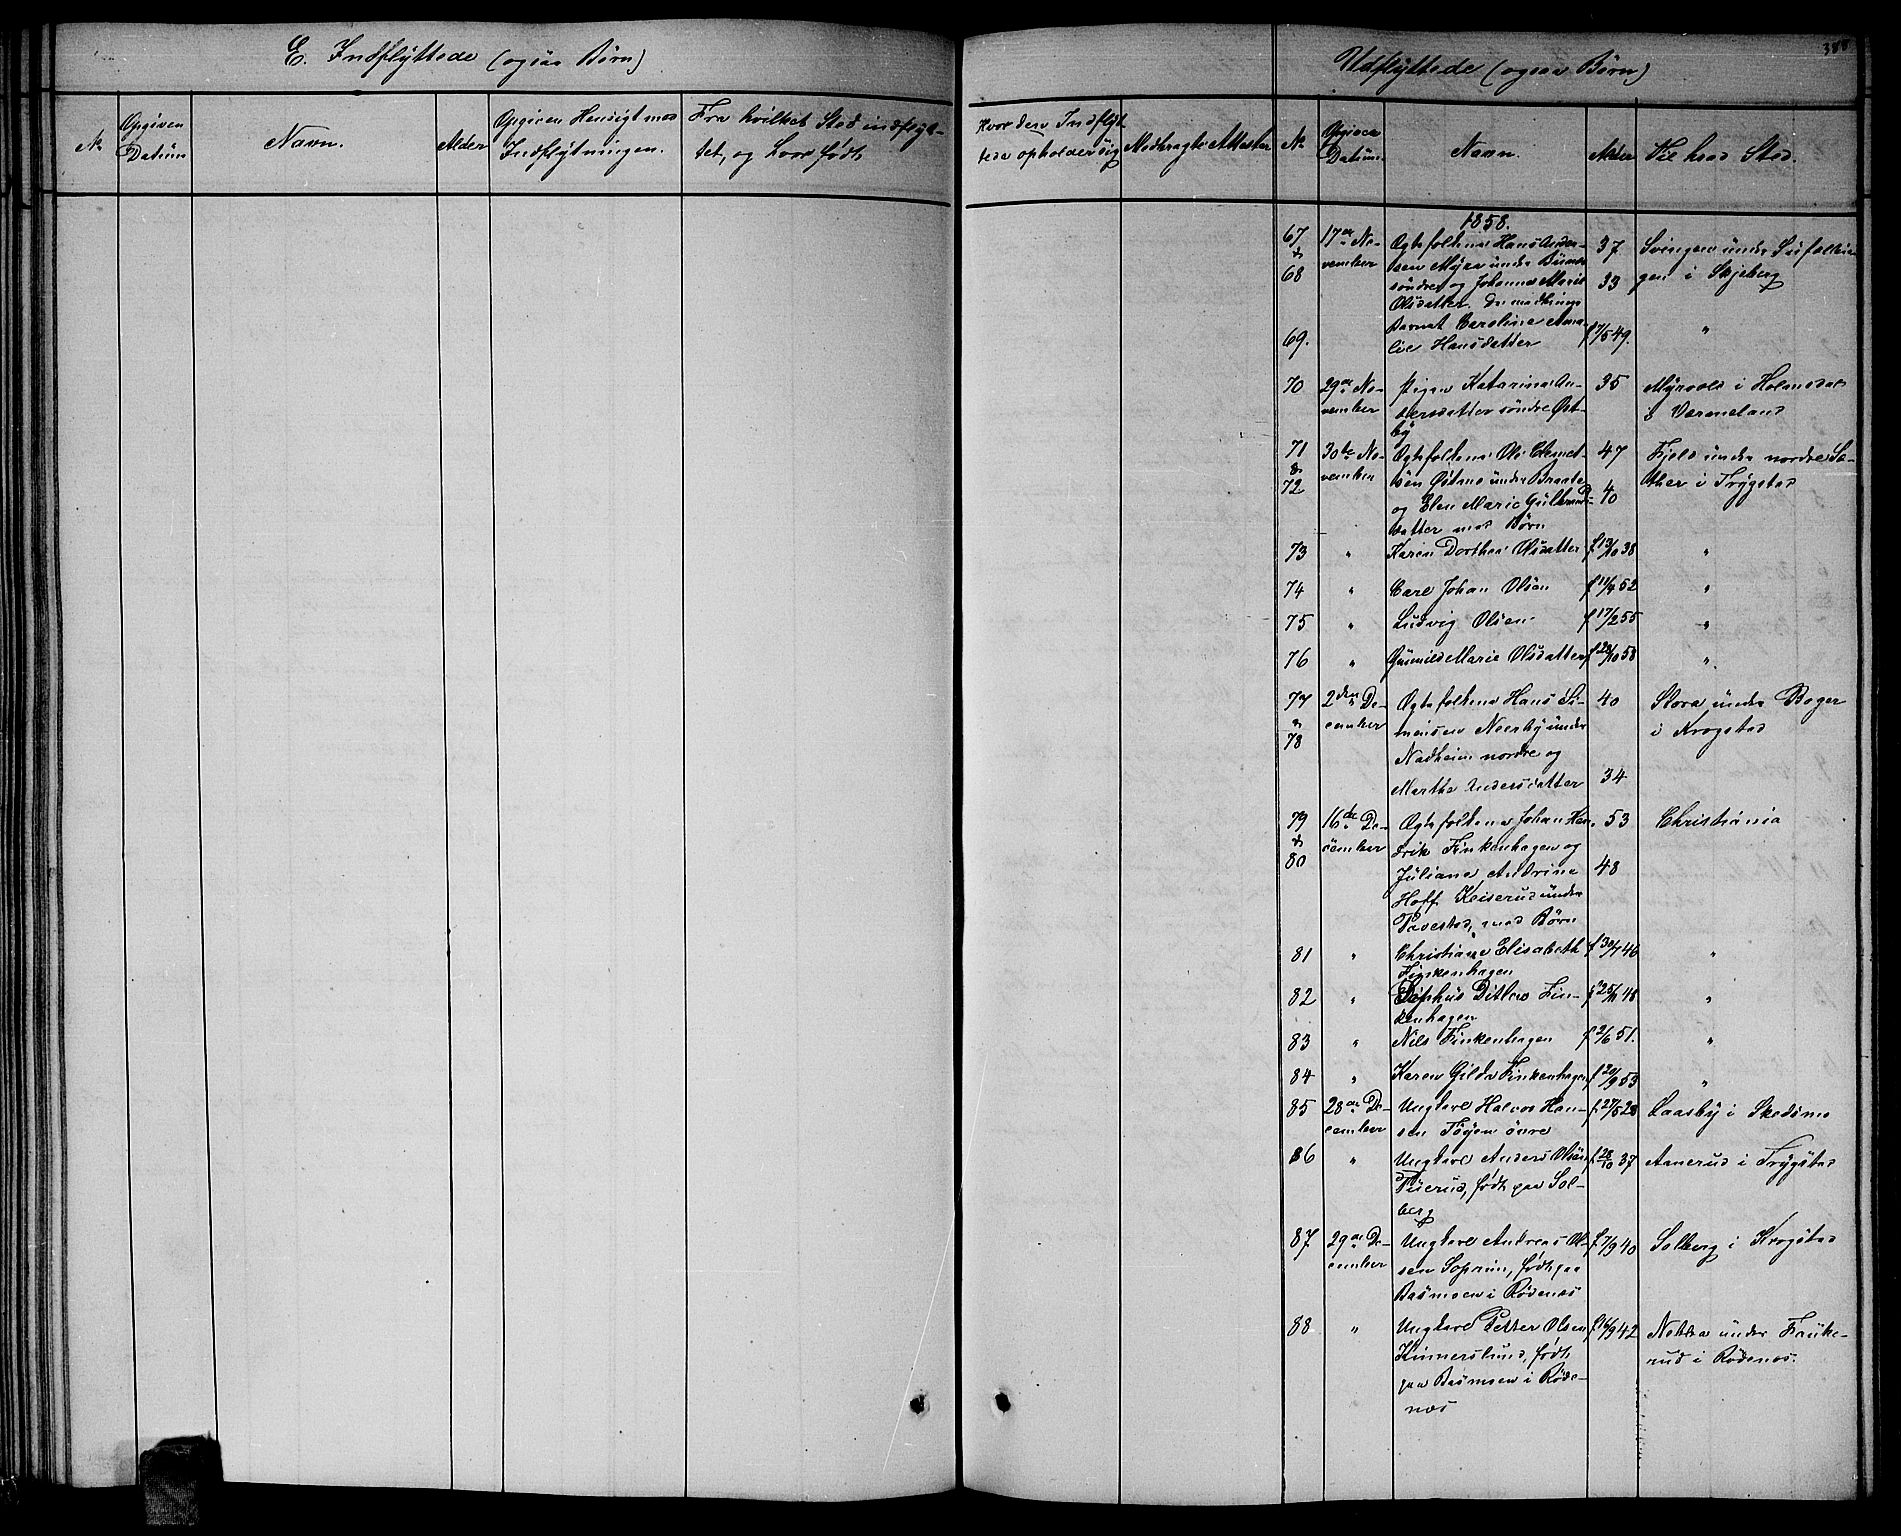 E. Indflyttede (ogsaa Børn)
No
Opgiven
Datum
Navn.
Alder
Opgiven Hensigt med
Indflytningen.
Fra hvilket Sted indflyt-
tet, og hvor født
Hvor den Indflyt
tede opholder sig
Medbragte Attester
Udflyttede (ogsaa Børn)
388
No
Opgiven
Datum.
Navn.
Alder
Til hvad Sted.
1858.
67
&
68
17de No-
vember
Ægtefolkene Hans Ander-
sen Myra under
søndre og Johanne Marie
Olsdatter. De medbringe
37
33
Svingen under
gen i Skjeberg
69.
Barnet Caroline Ama-
lie Hansdatter
f 7/5 49.
"
70
29de No-
vember
Pigen Katarina An-
dersdatter søndre Øst-
by
35
Myrvold i Holmedal
i Værmeland
71
&
72
30te No-
vember
Ægtefolkene Ole Clemet-
sen Østens under Braate
og Elen Marie Gulbrands-
datter med Børn
47
40
Fjeld under nordre Sæ-
ther i Trygstad
73
"
Karen Dorthea Olsdatter
f 13/10 38
"
74
"
Carl Johan Olsen
f 11/4 52
"
75
"
Ludvig Olsen
f 17/2 55
"
76
"
Gunnild Marie Olsdatter
f 22/10 58
"
77
&
78
2den De-
cember
Ægtefolkene Hans Si-
mensen Neerby under
Nadheim nordre og
Marthe Andersdatter
40
34
Stora under Boger
i Krogstad
79
&
80
16de De-
cember
Ægtefolkene Johan Hen-
drik Finkenhagen og
Juliane Andrine
Hoff Keiserud under
Tavestad, med Børn
53
48
Christiania
81
"
Christiane Elisabeth
Finkenhagen
f 30/7 46
"
82
"
Sophus Ditlev Fin-
kenhagen
f 25/11 48
"
83
"
Nils Finkenhagen
f 2/6 51.
"
84
"
Karen Gilda Finkenhagen
f 20/9 53
"
85
28de De-
cember
Ungkarl Halvor Han-
sen Tøyen øvre
f. 27/5 28
Laasby i Skedsmo
86
"
Ungkarl Anders Olsen
Tuerud, født paa Sol-
berg
f. 28/10 37
Aanerud i Trygstad
87
29de De-
cember
Ungkarl Andreas Ol-
sen Soprim, født paa
Basmoen i Rødenæs
f. 7/9 40
Solberg i Krogstad
88
"
Ungkarl Petter Olsen
Kinnerslund, født
paa Basmoen i Røde-
næs
f 16/9 42
under Fauke-
rud i Rødenæs.